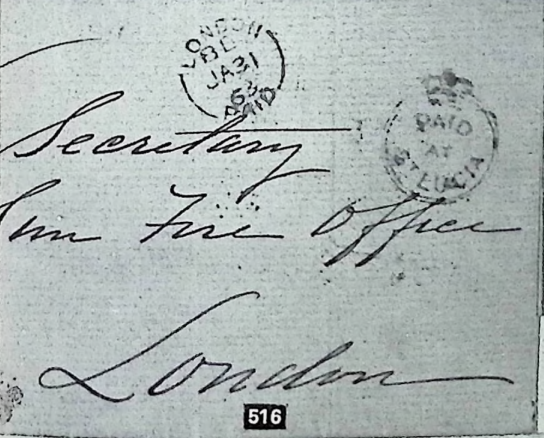 LONDON
BE
JA31
63
PAID
PAID
AT
ST LUCIA
Secretary
Sun Fire Office
London
516